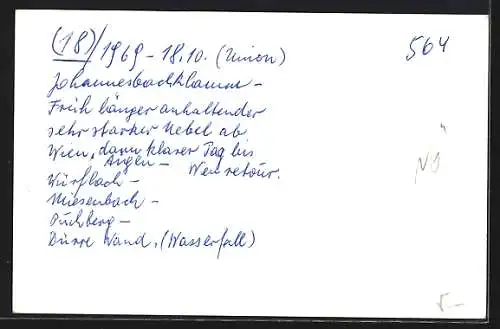 (18)/1969 - 18.10. (Union) 564
Johannesbachklamm -
Früh länger anhaltender
sehr starker Nebel ab
Wien, dann klarer Tag bis
Wien retour.
Würflach -
Miesenbach -
Puchberg -
Dürre Wand. (Wasserfall)